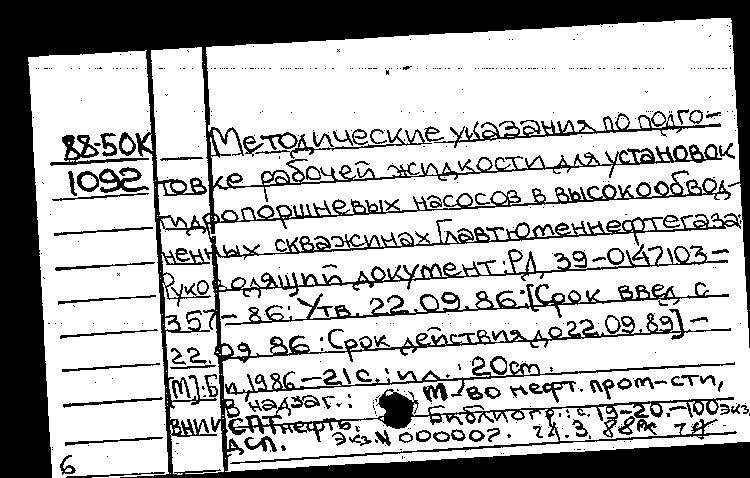 88-50К
1092
Методические указания по подго-
товке рабочей жидкости для установок
гидропоршневых насосов в высокообвод-
ненных скважинах Главтюменнефтегаза:
Руководящий документ: РД 39-0147103-
357-86: Утв. 22.09.86: [Срок введ. с
22.09.86: Срок действия до 22.09.89].-
[М]: Б.и, 1986.-21 с.: ил.; 20 cm.
В надзаг.: М-во нефт. пром-сти,
ВНИИСПТнефть. Библиогр.: с. 19-20.-100 экз.
ДСП. Экз. N 000007. 3. 88
6